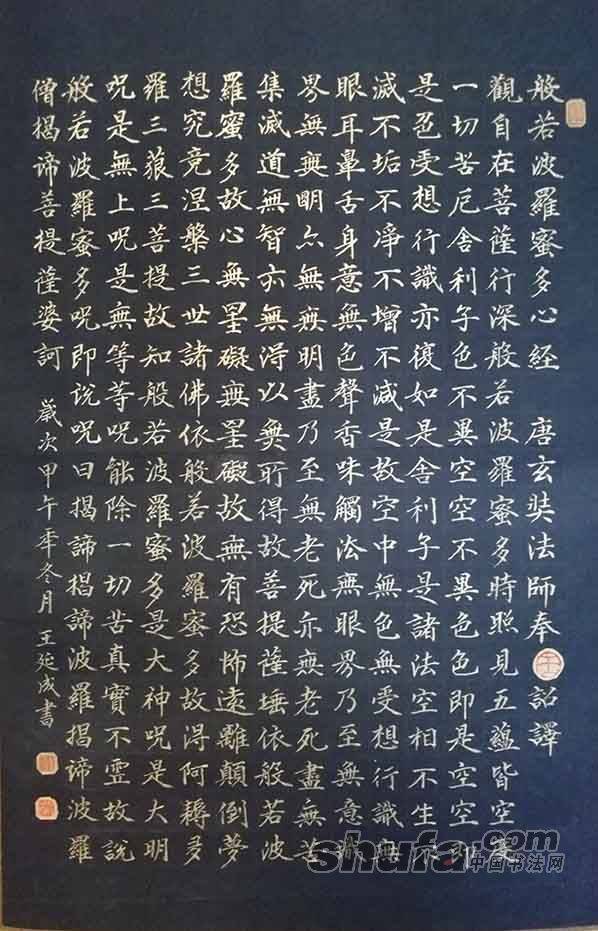 般若波羅蜜多心经 唐玄奘法師奉 詔譯
觀自在菩薩行深般若波羅蜜多時照見五蘊皆空度
一切苦厄舍利子色不異空空不異色色即是空空即
是色受想行識亦復如是舍利子是諸法空相不生不
滅不垢不淨不增不減是故空中無色無受想行識無
眼耳鼻舌身意無色聲香味觸法無眼界乃至無意識
界無無明亦無無明盡乃至無老死亦無老死盡無苦
集滅道無智亦無得以無所得故菩提薩埵依般若波
羅蜜多故心無罣礙無罣礙故無有恐怖遠離顛倒夢
想究竟涅槃三世諸佛依般若波羅蜜多故得阿耨多
羅三藐三菩提故知般若波羅蜜多是大神呪是大明
呪是無上呪是無等等呪能除一切苦真實不虛故說
般若波羅蜜多呪即說呪曰揭諦揭諦波羅揭諦波羅
僧揭諦菩提薩婆訶 歲次甲午年冬月 王延成書
shufa.com
中国书法网